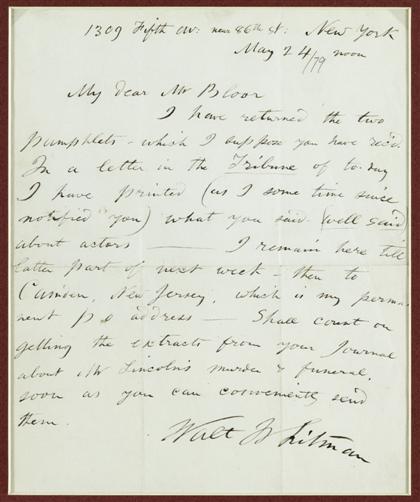 1309 Fifth av: near 86th st: New York
May 24/79 noon
My dear Mr Bloor
I have returned the two
pamphlets - which I suppose you have rec'd.
In a letter in the Tribune of to-day
I have printed (as I some time since
notified you) what you said (well said)
about actors — I remain here till
latter part of next week - then to
Camden, New Jersey, which is my perma-
nent p o address — Shall count on
getting the extracts from your Journal
about Mr Lincoln's murder & funeral,
soon as you can conveniently send
them.
Walt Whitman